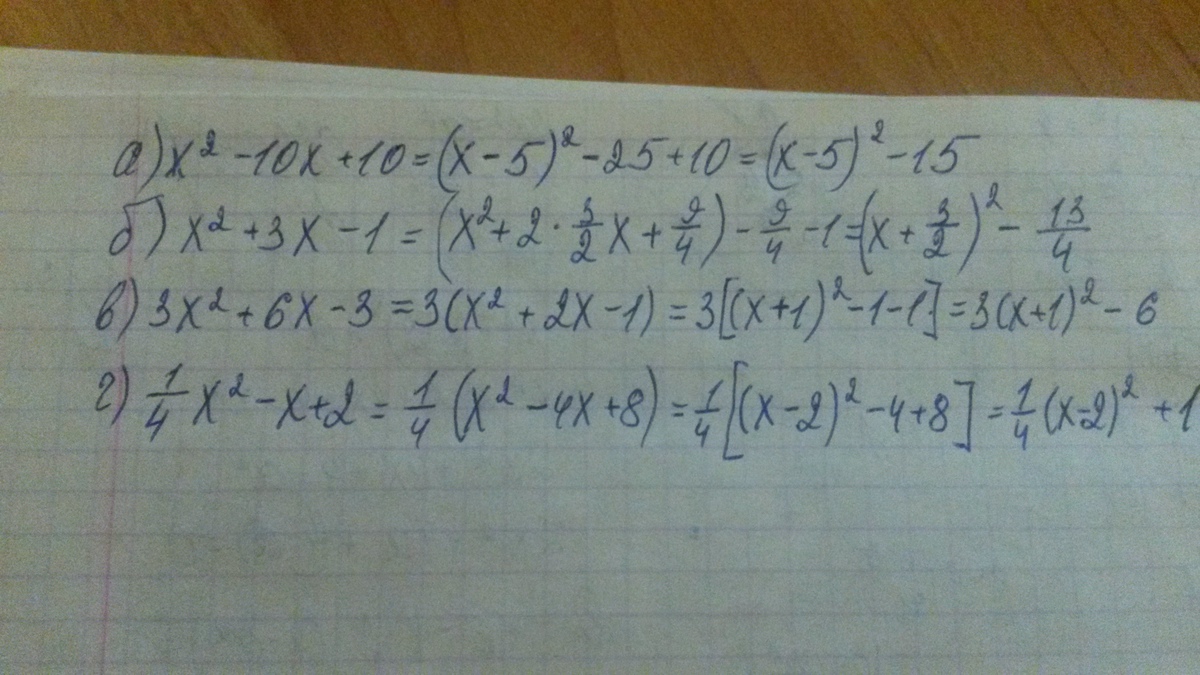 а) x² - 10x + 10 = (x - 5)² - 25 + 10 = (x - 5)² - 15
б) x² + 3x - 1 = (x² + 2 · 3/2 x + 9/4) - 9/4 - 1 = (x + 3/2)² - 13/4
в) 3x² + 6x - 3 = 3(x² + 2x - 1) = 3[(x + 1)² - 1 - 1] = 3(x + 1)² - 6
г) 1/4 x² - x + 2 = 1/4 (x² - 4x + 8) = 1/4 [(x - 2)² - 4 + 8] = 1/4 (x - 2)² + 1